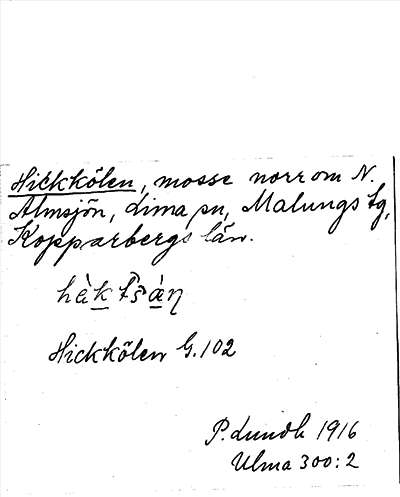 Hickkölen, mosse norr om N.
Almsjön, Lima sn, Malungs tg,
Kopparbergs län.
Hickkölen G.102
P. Lundh 1916
Ulma 300:2